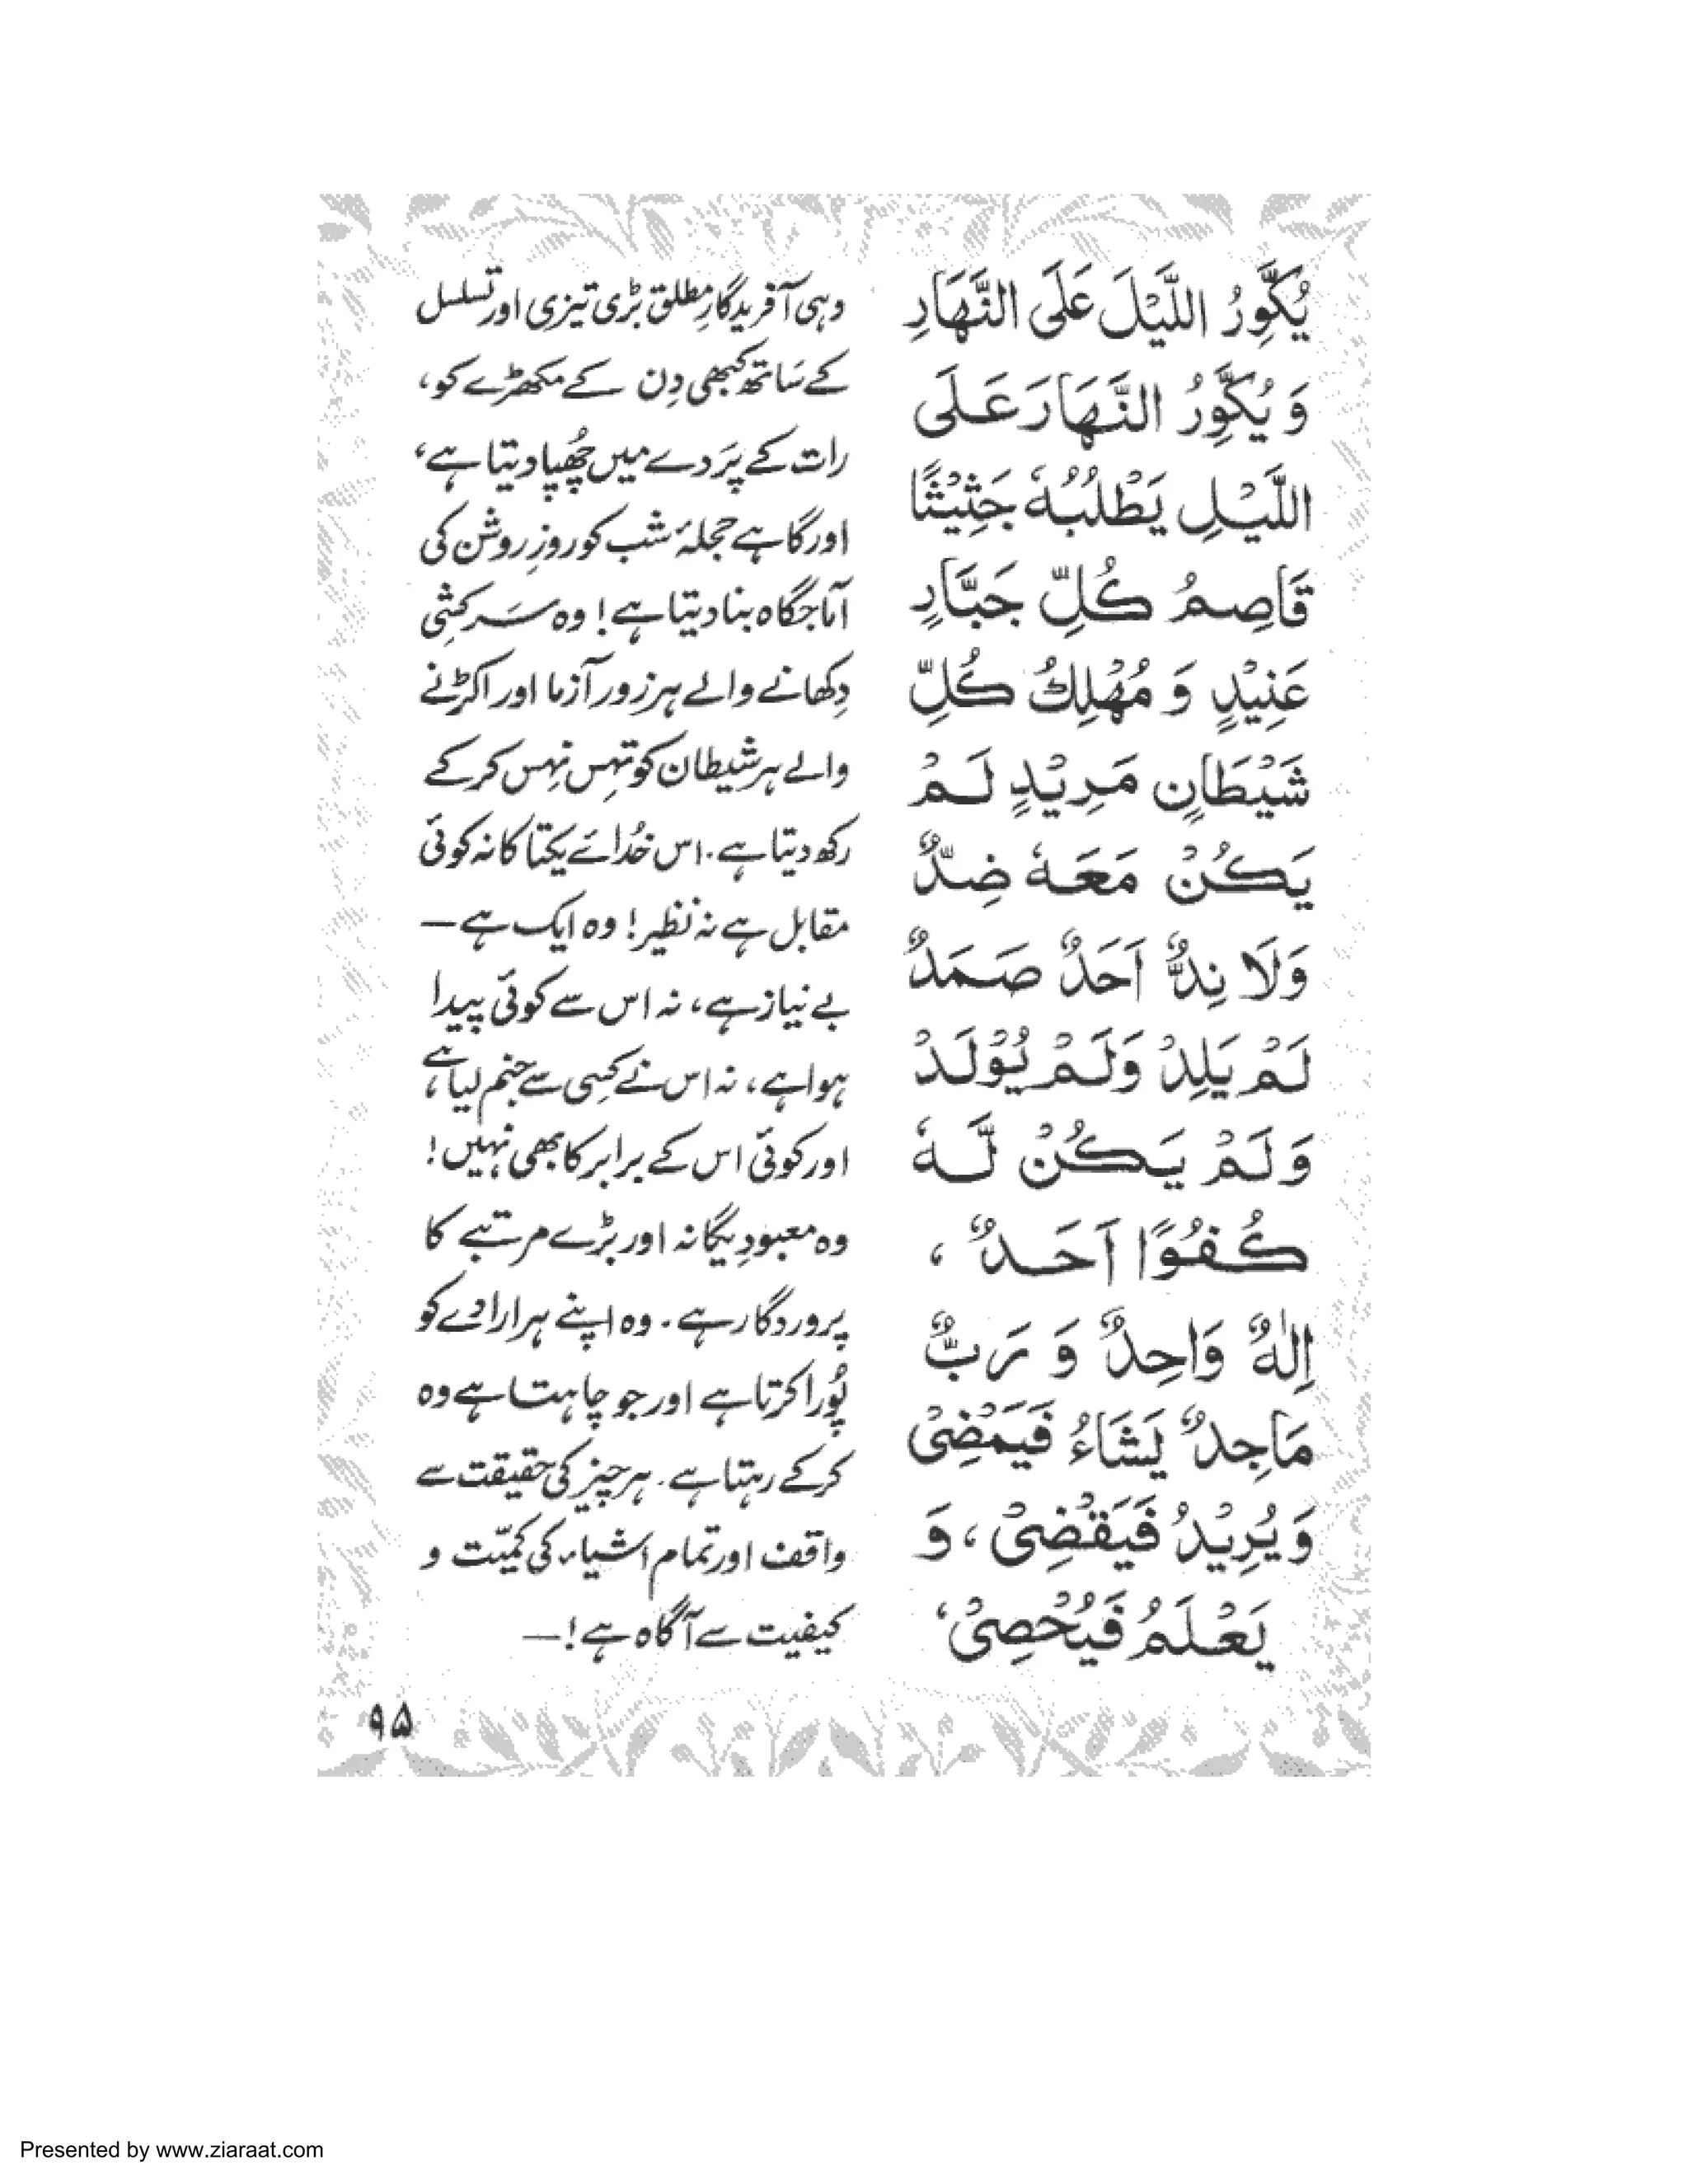 يُكَوِّرُ اللَّيْلَ عَلَى النَّهَارِ
وَ يُكَوِّرُ النَّهَارَ عَلَى
اللَّيْلِ يَطْلُبُهٗ حَثِيْثًا
قَاصِمُ كُلِّ جَبَّارٍ
عَنِيْدٍ وَ مُهْلِكُ كُلِّ
شَيْطَانٍ مَرِيْدٍ لَمْ
يَكُنْ مَعَهٗ ضِدٌّ
وَلَا نِدٌّ اَحَدٌ صَمَدٌ
لَمْ يَلِدْ وَلَمْ يُوْلَدْ
وَلَمْ يَكُنْ لَّهٗ
كُفُوًا اَحَدٌ ،
اِلٰهٌ وَاحِدٌ وَ رَبٌّ
مَاجِدٌ يَشَاءُ فَيَمْضِىْ
وَيُرِيْدُ فَيَقْضِىْ ، وَ
يَعْلَمُ فَيُحْصِىْ ،
وہی آفریدگارِ مطلق بڑی تیزی اور تسلسل
کے ساتھ کبھی دِن کے مکھڑے کو،
رات کے پَردے میں چُھپا دیتا ہے،
اور گاہے حجلۂ شب کو روزِ روشن کی
آماجگاہ بنا دیتا ہے! وہ سَرکشِی
دِکھانے والے ہر زور آزما اور اکڑنے
والے ہر شیطان کو تہِس نہِس کرکے
رکھ دیتا ہے۔ اس خُدائے یکتا کا نہ کوئی
مقابل ہے نہ نظیر! وہ ایک ہے —
بے نیاز ہے، نہ اس سے کوئی پیدا
ہوا ہے، نہ اس نے کِسی سے جنم لیا ہے،
اور کوئی اس کے برابر کا بھی نہیں!
وہ معبودِ یگانہ اور بڑے مرتبے کا
پروردگار ہے۔ وہ اپنے ہر ارادے کو
پُورا کرتا ہے اور جو چاہتا ہے وہ
کرکے رہتا ہے۔ ہر چیز کی حقیقت سے
واقف اور تمام اشیاء کی کمیّت و
کیفیت سے آگاہ ہے!—
۹۵
Presented by www.ziaraat.com